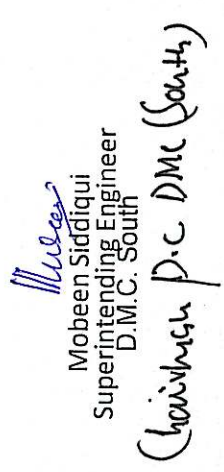 Mobeen Siddiqui
Superintending Engineer
D.M.C. South
(Chairman P.C DMC (South)